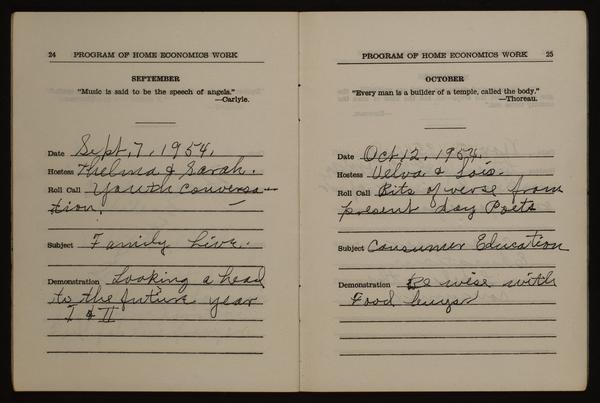 24 PROGRAM OF HOME ECONOMICS WORK
SEPTEMBER
"Music is said to be the speech of angels."
—Carlyle.
Date Sept. 7, 1954.
Hostess Thelma & Sarah.
Roll Call Youth Conversa-
tion.
Subject Family Live.
Demonstration Looking a head
to the future year
I & II
PROGRAM OF HOME ECONOMICS WORK 25
OCTOBER
"Every man is a builder of a temple, called the body."
—Thoreau.
Date Oct. 12, 1954.
Hostess Velva & Lois.
Roll Call Bits of verse from
present day Poets
Subject Consumer Education
Demonstration Be wise with
Food buys